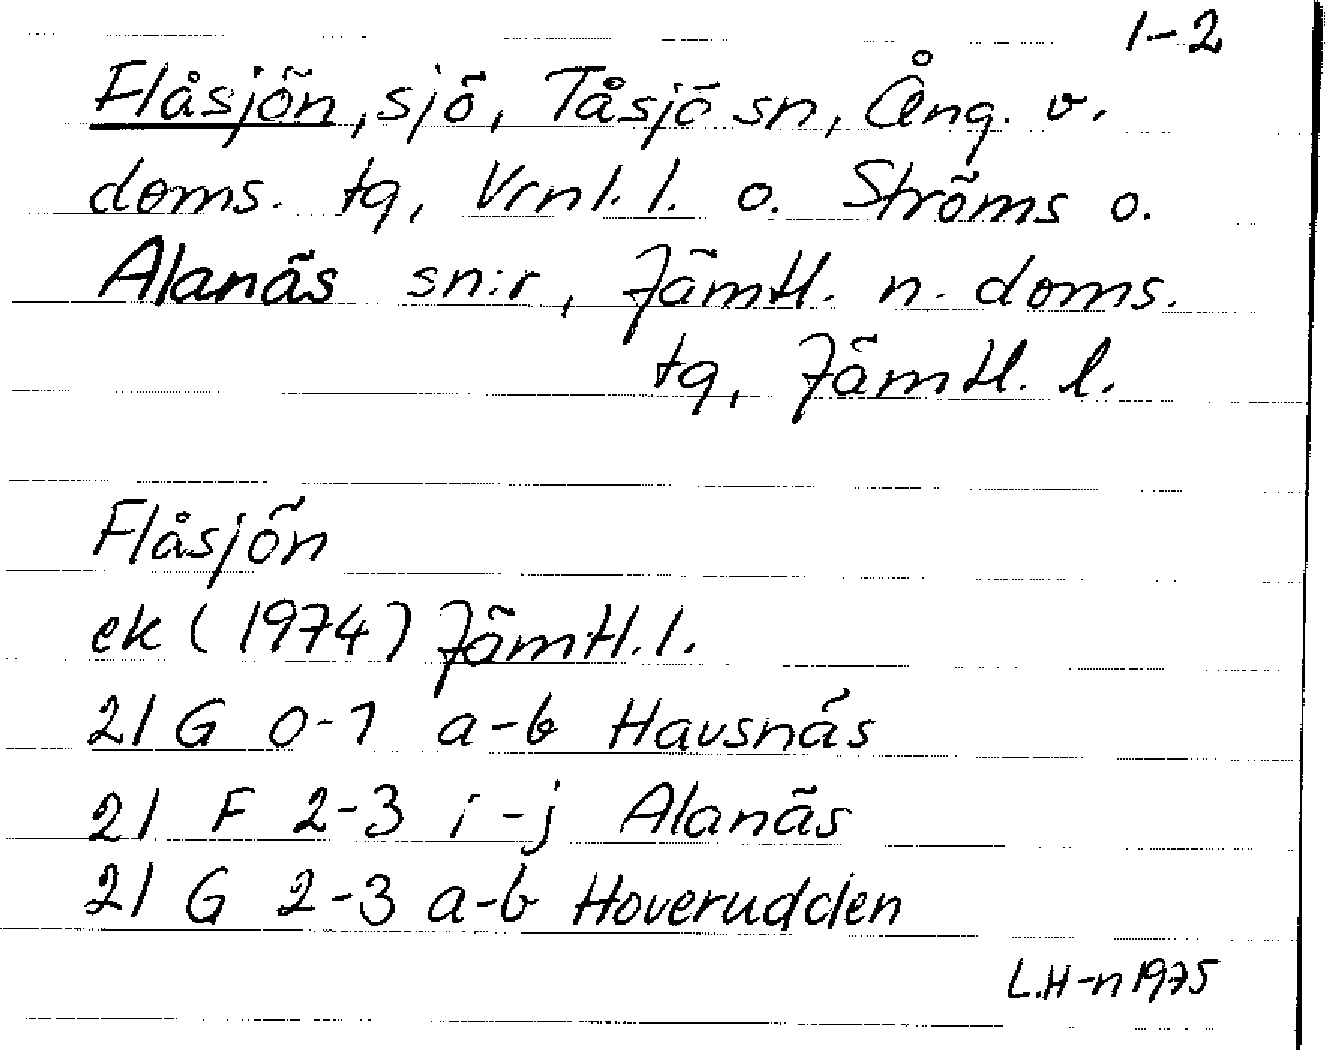 1-2
Flåsjön, sjö, Tåsjö sn, Ång. v.
doms. tg, Vrnl. l. o. Ströms o.
Alanäs sn:r, Jämtl. n. doms.
tg, Jämtl. l.
Flåsjön
ek (1974) Jämtl. l.
21 G 0-1 a-b Havsnäs
21 F 2-3 i-j Alanäs
21 G 2-3 a-b Hoverudden
L.H-n 1975